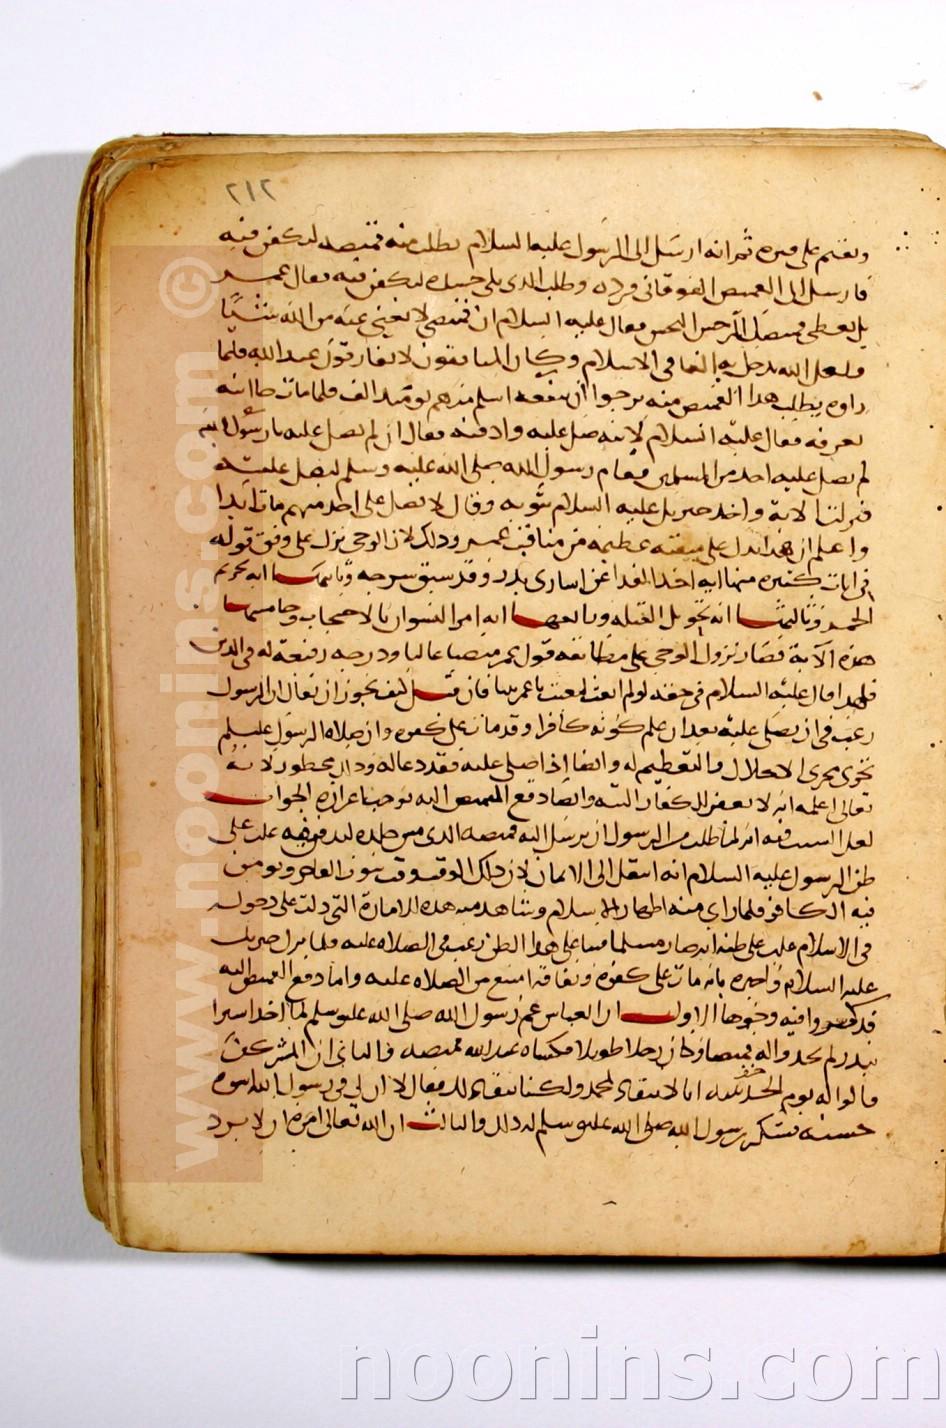 ٢١٢
ويقوم على قبره ثم انه ارسل الى الرسول عليه السلام يطلب منه قميصه ليكفن فيه
فارسل اليه القميص الفوقاني فرده وطلب الذي يلي جسده ليكفن فيه فقال عمر
لم تعطى قميصك الرجس النجس فقال عليه السلام ان قميصي لا يغني عنه من الله شيئا
ولعل الله يدخل به الفا في الاسلام وكان المنافقون لا يفارقون عبد الله فلما
راوه يطلب هذا القميص منه يرجوا ان ينفعه اسلم منهم يومئذ الف فلما مات جا ابنه
يعرفه فقال عليه السلام لابنه صل عليه وادفنه فقال ان لم تصل عليه يا رسول الله
لم يصل عليه احد من المسلمين فقام رسول الله صلى الله عليه وسلم ليصل عليه
فنزلت الاية واخذ جبريل عليه السلام بثوبه وقال لا تصل على احد منهم مات ابدا
واعلم ان هذا يدل على منقبة عظيمة من مناقب عمر وذلك لان الوحي نزل على وفق قوله
في ايات كثيرة منها اية اخذ الفدا عن اسارى بدر وقد سبق شرحه وثانيها اية تحريم
الخمر وثالثها اية تحويل القبلة ورابعها اية امر النسوان بالاحجاب وخامسها
هذه الاية فصار نزول الوحي على مطابقة قول عمر منصبا عاليا ودرجه رفيعة له في الدين
فلهذا قال عليه السلام في حقه لو لم ابعث لبعثت يا عمر نبيا فان قيل كيف يجوز ان يقال ان الرسول
رغب في ان يصلى عليه بعد ان علم كونه كافرا وقد مات على كفره وان صلاه الرسول عليه
تجري مجرى الاجلال والتعظيم له وايضا اذا صلى عليه فقد دعا له وذلك محظور لانه
تعالى اعلمه انه لا يغفر للكفار البتة وايضا دفع القميص اليه يوجب اعزازه الجواب
لعل السبب فيه انه لما طلب من الرسول ان يرسل اليه قميصه الذي مس جلده ليدفن فيه غلب على
ظن الرسول عليه السلام انه انتقل الى الايمان لان ذلك الوقت وقت يتوب الفاجر ويومن
فيه الكافر فلما راى منه اظهار الاسلام وشاهد منه هذه الامارة التي دلت على دخوله
في الاسلام غلب على ظنه انه صار مسلما فبنا على هذا الظن رغب في الصلاه عليه فلما نزل جبريل
عليه السلام واخبره بانه مات على كفره ونفاقه امتنع من الصلاه عليه واما دفع القميص اليه
فذكروا فيه وجوها الاول ان العباس عم رسول الله صلى الله عليه وسلم لما اخذ اسيرا
ببدر لم يجدوا له قميصا وكان رجلا طويلا فكساه عبد الله قميصه والثاني ان المشركين
قالوا له يوم الحديبيه انا لا ننقاد لمحمد ولكنا ننقاد لك فقال لا ان لي في رسول الله اسوه
حسنه فشكر رسول الله صلى الله عليه وسلم له ذلك والثالث ان الله تعالى امره ان لا يرد
www.noonins.com ©
noonins.com